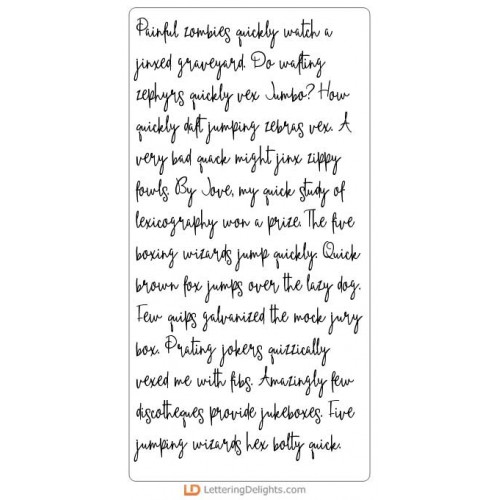 Painful zombies quickly watch a
jinxed graveyard. Do wafting
zephyrs quickly vex Jumbo? How
quickly daft jumping zebras vex. A
very bad quack might jinx zippy
fowls. By Jove, my quick study of
lexicography won a prize. The five
boxing wizards jump quickly. Quick
brown fox jumps over the lazy dog.
Few quips galvanized the mock jury
box. Prating jokers quizzically
vexed me with fibs. Amazingly few
discotheques provide jukeboxes. Five
jumping wizards hex bolty quick.
LD LetteringDelights.com